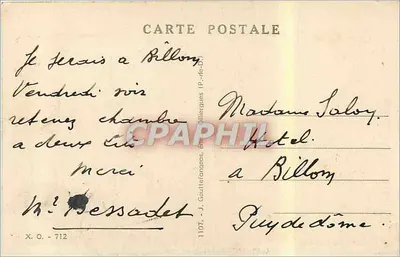 CARTE POSTALE
Je serais a Billom
Vendredi soir
retenez chambre
a deux lits
Merci
Mr Bessadet
Madame Saloy
Hotel
a Billom
Puy de dôme.
X. O. - 712
1107. - J. Gouttefangeas, (P.-de-D.)
CPAPHIL